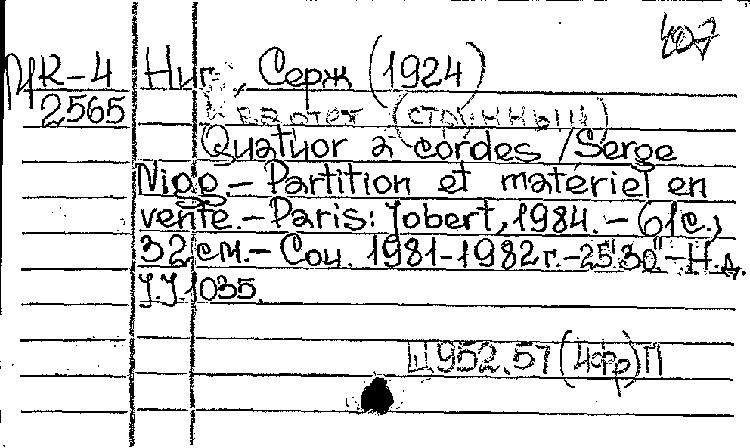 407
ЦК-4 Ниг, Серж (1924)
2565 Квартет (струнный)
Quatuor a cordes / Serge
Nigg. – Partition et materiel en
vente. – Paris: Jobert, 1984. – 61с.;
32 см. – Соч. 1981-1982 г. – 25'30". – Н.д.
J.J 1035.
Щ952.57(4Фр)П